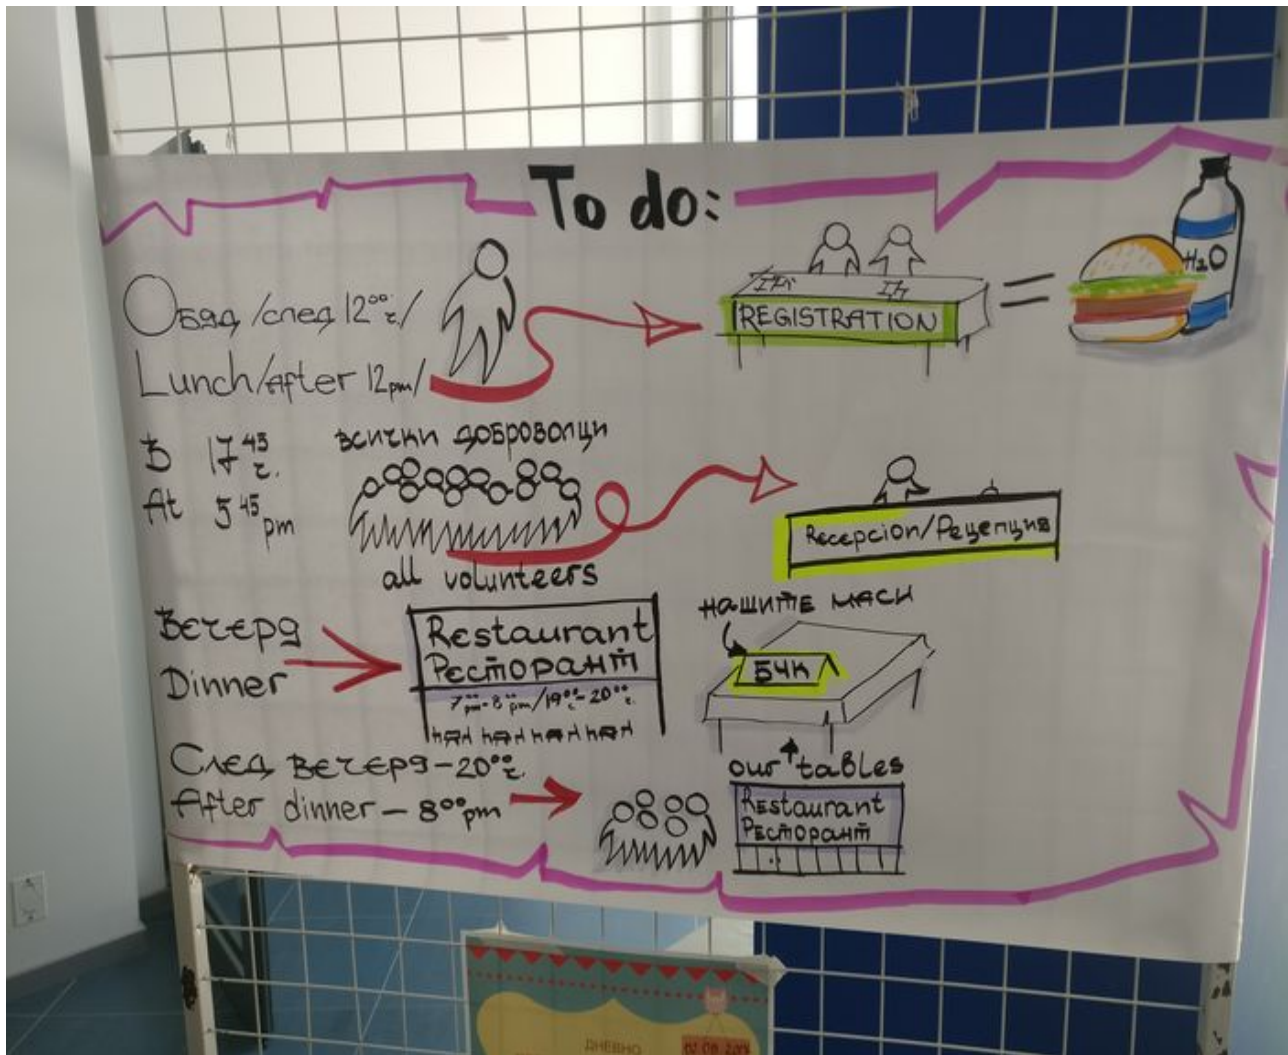 To do:
Обяд /след 12⁰⁰ ч/
Lunch/After 12pm/
REGISTRATION
=
H2O
В 17⁴⁵ ч.
At 5⁴⁵ pm
всички доброволци
all volunteers
Recepcion/Рецепция
Вечеря
Dinner
Restaurant
Ресторант
7⁰⁰ pm-8⁰⁰ pm/19⁰⁰ ч-20⁰⁰ ч.
нашите маси
БЧК
our tables
След вечеря-20⁰⁰ ч.
After dinner-8⁰⁰ pm
Restaurant
Ресторант
ДНЕВНО